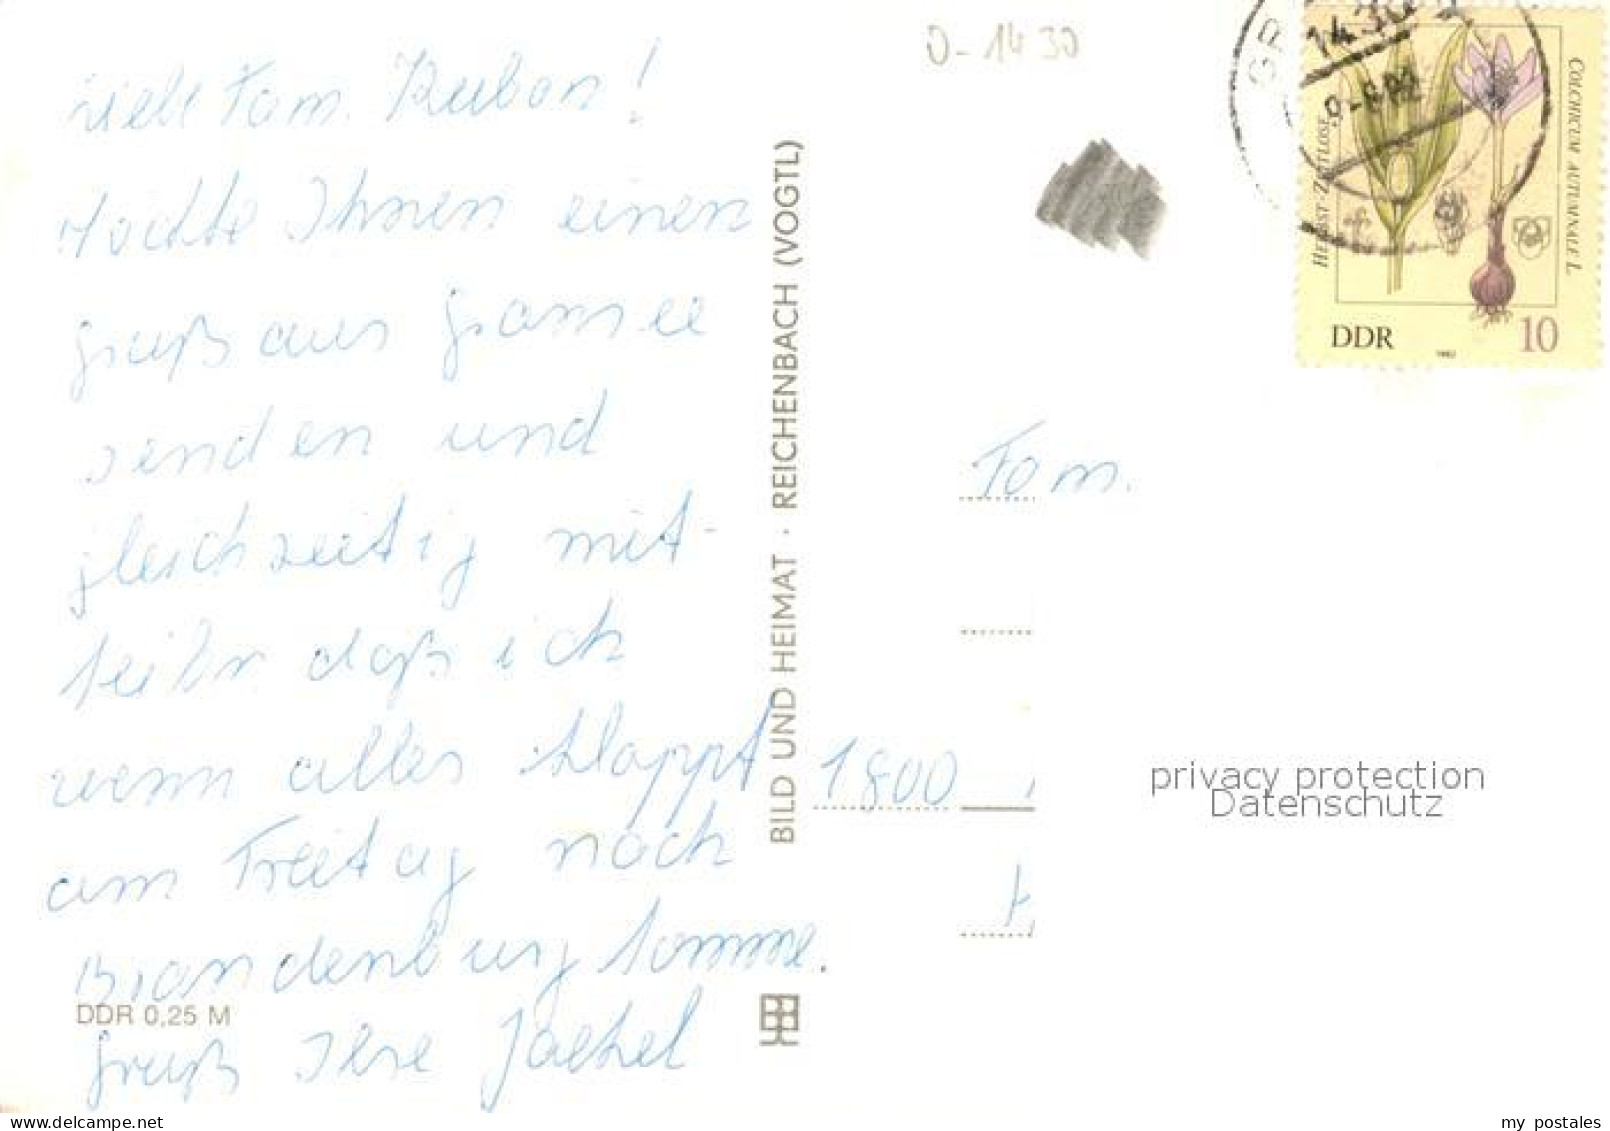 Liebe Fam. Kuban!
Möchte Ihnen einen
Gruß aus Gransee
senden und
gleichzeitig mit-
teilen daß ich
wenn alles klappt
am Freitag nach
Brandenburg komme.
Gruß Ihre Jaekel
DDR 0,25 M
BILD UND HEIMAT · REICHENBACH (VOGTL)
0-1430
1430
HERBST-ZEITLOSE
COLCHICUM AUTUMNALE L.
DDR 1982 10
Fam.
1800
privacy protection
Datenschutz
delcampe.net
my_postales